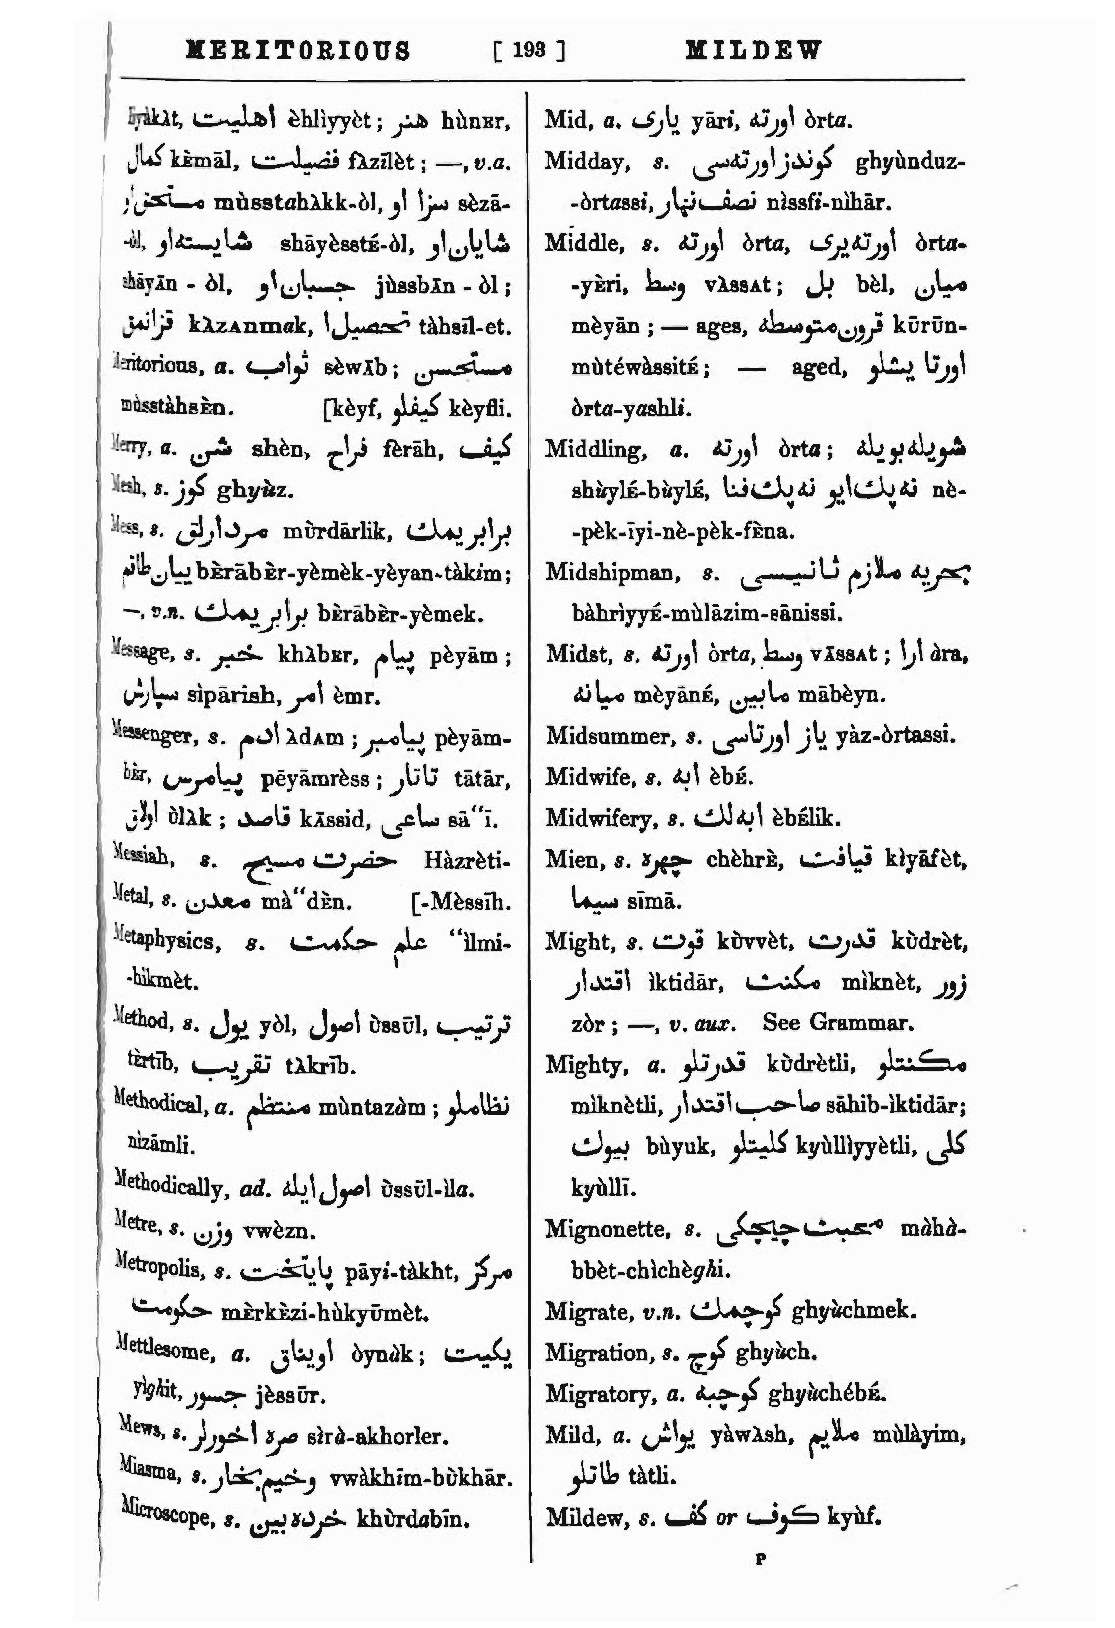 MERITORIOUS [ 193 ] MILDEW
liyākāt, اهليت èhlìyyèt; هنر hùnᴇr,
كمال kᴇ̀māl, فضيلت fᴀzīlèt; —, v.a.
مستحق او mùsstahᴀkk-òl, سزا او sèzā-
-òl, شايسته او shāyèsstᴇ́-òl, شايان او
shāyīn - òl, جسبان او jùssbīn - òl;
قزانمق kᴀzᴀnmak, تحصيل ا tàhsīl-et.
Meritorious, a. ثواب sèwᴀb; مستحسن
mùsstàhsᴇ̀n. [kèyf, كيفلو kèyfli.
Merry, a. شن shèn, فراح fèrāh, كيف
Mesh, s. كوز ghyùz.
Mess, s. مردارلق mùrdārlik, برابر يمك
بيان طاقم bᴇ̀rābᴇ̀r-yèmèk-yèyan-tàkim;
—, v.n. برابر يمك bᴇ̀rābᴇ̀r-yèmek.
Message, s. خبر khᴀbᴇr, پيام pèyām;
سپارش sìpārish, امر èmr.
Messenger, s. ادم ᴀdᴀm; پيامبر pèyām-
bᴇ̀r, پيامرس pēyāmrèss; تاتار tātār,
اولاق ùlᴀk; قاصد kāssid, ساعى sā“ī.
Messiah, s. حضرت مسيح Hàzrèti-
Metal, s. معدن mà“dᴇ̀n. [-Mèssīh.
Metaphysics, s. علم حكمت “ìlmi-
-hikmèt.
Method, s. يول yòl, اصول ùssūl, ترتيب
tèrtīb, تقريب tᴀkrīb.
Methodical, a. منتظم mùntazàm; نظاملو
nizāmli.
Methodically, ad. اصول ايله ùssūl-ìla.
Metre, s. وزن vwèzn.
Metropolis, s. پايتخت pāyi-tàkht, مركز
حكومت mᴇ̀rkᴇ̀zi-hùkyūmèt.
Mettlesome, a. اويناق òynàk; يكيت
yìghit, جسور jèssūr.
Mews, s. صره اخورلر sìrà-akhorler.
Miasma, s. وخيم بخار vwàkhīm-bùkhār.
Microscope, s. خرده بين khùrdabīn.
Mid, a. يارى yāri, اورته òrta.
Midday, s. كوندز اورته سى ghyùnduz-
-òrtassi, نصف نهار nìssfi-nìhār.
Middle, s. اورته òrta, اورته يرى òrta-
-yᴇ̀ri, وسط vᴀssᴀt; بل bèl, ميان
mèyān; — ages, قرون متوسطه kūrūn-
mùtéwàssitᴇ́; — aged, اورتا يشلو
òrta-yashli.
Middling, a. اورته òrta; شويله بويله
shùylᴇ́-bùylᴇ́, نه پك ايو نه پك فنا nè-
-pèk-īyi-nè-pèk-fᴇ̀na.
Midshipman, s. بحريه ملازم ثانيسى
bàhrìyyᴇ́-mùlāzim-sānissi.
Midst, s. اورته òrta, وسط vᴀssᴀt; ارا àra,
ميانه mèyānᴇ́, مابين mābèyn.
Midsummer, s. ياز اورتاسى yàz-òrtassi.
Midwife, s. ابه èbᴇ́.
Midwifery, s. ابه لك èbᴇ́lik.
Mien, s. چهره chèhrᴇ̀, قيافت kìyāfèt,
سيما sīmā.
Might, s. قوت kùvvèt, قدرت kùdrèt,
اقتدار ìktidār, مكنت mìknèt, زور
zòr; —, v. aux. See Grammar.
Mighty, a. قدرتلو kùdrètli, مكنتلو
mìknètli, صاحب اقتدار sāhib-ìktidār;
بيوك bùyuk, كليتلو kyùllìyyètli, كلى
kyùllī.
Mignonette, s. محبت چيچكى màhà-
bbèt-chìchèghi.
Migrate, v.n. كوچمك ghyùchmek.
Migration, s. كوچ ghyùch.
Migratory, a. كوچبه ghyùchébᴇ́.
Mild, a. يواش yàwᴀsh, ملايم mùlàyim,
طاتلو tàtli.
Mildew, s. كف or كوف kyùf.
P